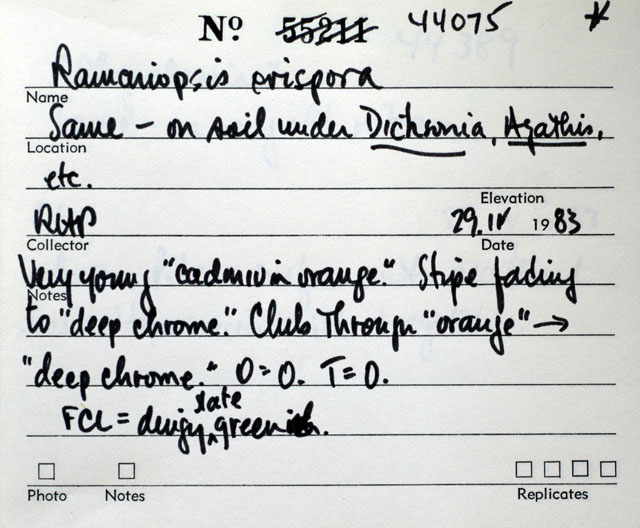 Nº 55211 44075 *
Ramariopsis crispora
Name
Same – on soil under Dicksonia, Agathis,
Location
etc.
Elevation
RHP 29.IV 1983
Collector Date
Very young "cadmium orange." Stipe fading
Notes
to "deep chrome." Club Through "orange" →
"deep chrome." O = O. T = O.
slate
FCL = dingy ^ green.
Photo Notes Replicates